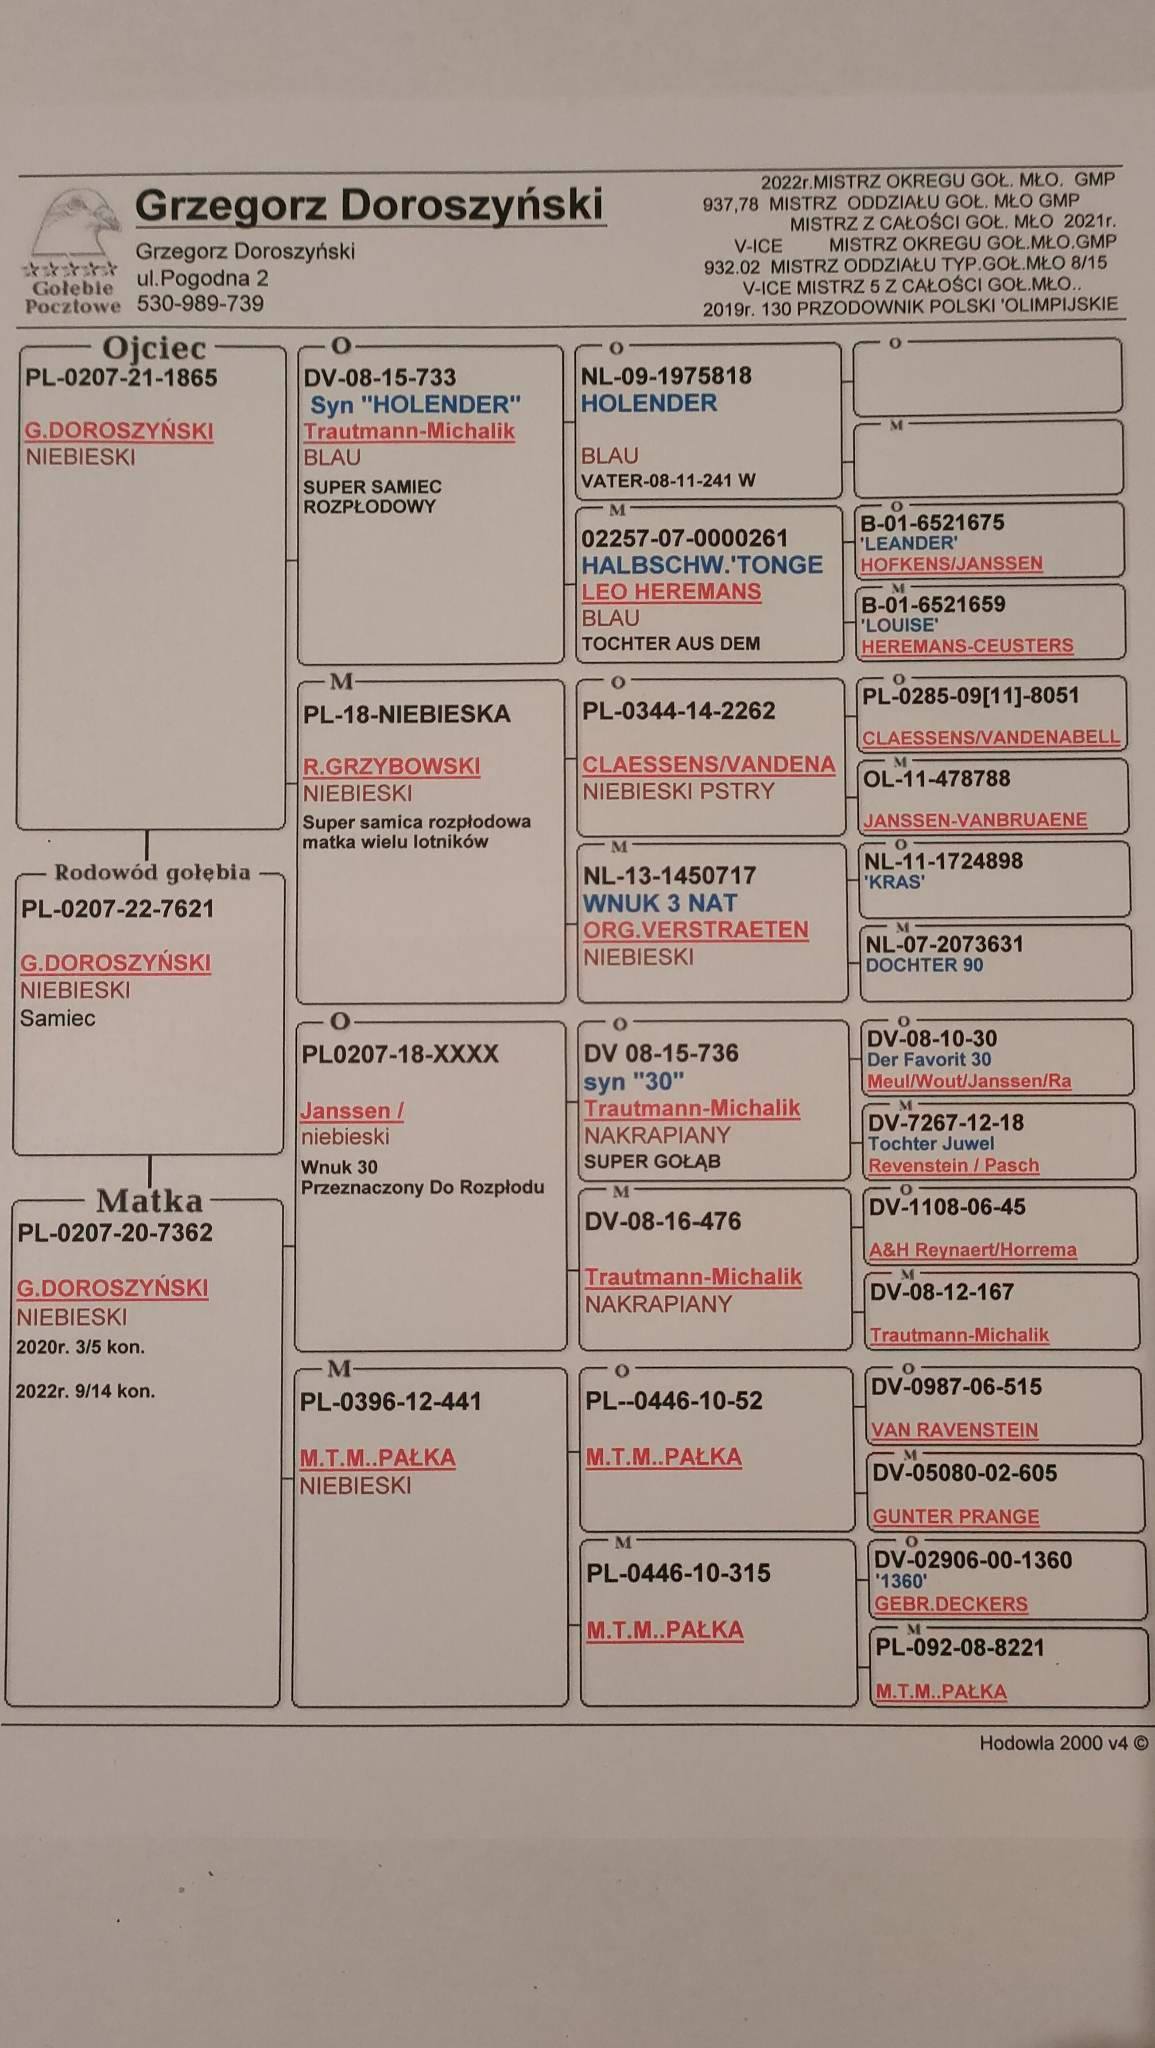 Grzegorz Doroszyński
Grzegorz Doroszyński
ul.Pogodna 2
530-989-739
Gołębie
Pocztowe
2022r.MISTRZ OKREGU GOŁ. MŁO. GMP
937,78 MISTRZ ODDZIAŁU GOŁ. MŁO GMP
MISTRZ Z CAŁOŚCI GOŁ. MŁO 2021r.
V-ICE MISTRZ OKREGU GOŁ.MŁO.GMP
932.02 MISTRZ ODDZIAŁU TYP.GOŁ.MŁO 8/15
V-ICE MISTRZ 5 Z CAŁOŚCI GOŁ.MŁO..
2019r. 130 PRZODOWNIK POLSKI 'OLIMPIJSKIE
Ojciec
PL-0207-21-1865
G.DOROSZYŃSKI
NIEBIESKI
Rodowód gołębia
PL-0207-22-7621
G.DOROSZYŃSKI
NIEBIESKI
Samiec
Matka
PL-0207-20-7362
G.DOROSZYŃSKI
NIEBIESKI
2020r. 3/5 kon.
2022r. 9/14 kon.
O
DV-08-15-733
Syn "HOLENDER"
Trautmann-Michalik
BLAU
SUPER SAMIEC
ROZPŁODOWY
M
PL-18-NIEBIESKA
R.GRZYBOWSKI
NIEBIESKI
Super samica rozpłodowa
matka wielu lotników
O
PL0207-18-XXXX
Janssen /
niebieski
Wnuk 30
Przeznaczony Do Rozpłodu
M
PL-0396-12-441
M.T.M..PAŁKA
NIEBIESKI
O
NL-09-1975818
HOLENDER
BLAU
VATER-08-11-241 W
M
02257-07-0000261
HALBSCHW.'TONGE
LEO HEREMANS
BLAU
TOCHTER AUS DEM
O
PL-0344-14-2262
CLAESSENS/VANDENA
NIEBIESKI PSTRY
M
NL-13-1450717
WNUK 3 NAT
ORG.VERSTRAETEN
NIEBIESKI
O
DV 08-15-736
syn "30"
Trautmann-Michalik
NAKRAPIANY
SUPER GOŁĄB
M
DV-08-16-476
Trautmann-Michalik
NAKRAPIANY
O
PL--0446-10-52
M.T.M..PAŁKA
M
PL-0446-10-315
M.T.M..PAŁKA
O
M
O
B-01-6521675
'LEANDER'
HOFKENS/JANSSEN
M
B-01-6521659
'LOUISE'
HEREMANS-CEUSTERS
O
PL-0285-09[11]-8051
CLAESSENS/VANDENABELL
M
OL-11-478788
JANSSEN-VANBRUAENE
O
NL-11-1724898
'KRAS'
M
NL-07-2073631
DOCHTER 90
O
DV-08-10-30
Der Favorit 30
Meul/Wout/Janssen/Ra
M
DV-7267-12-18
Tochter Juwel
Revenstein / Pasch
O
DV-1108-06-45
A&H Reynaert/Horrema
M
DV-08-12-167
Trautmann-Michalik
O
DV-0987-06-515
VAN RAVENSTEIN
M
DV-05080-02-605
GUNTER PRANGE
O
DV-02906-00-1360
'1360'
GEBR.DECKERS
M
PL-092-08-8221
M.T.M..PAŁKA
Hodowla 2000 v4 ©